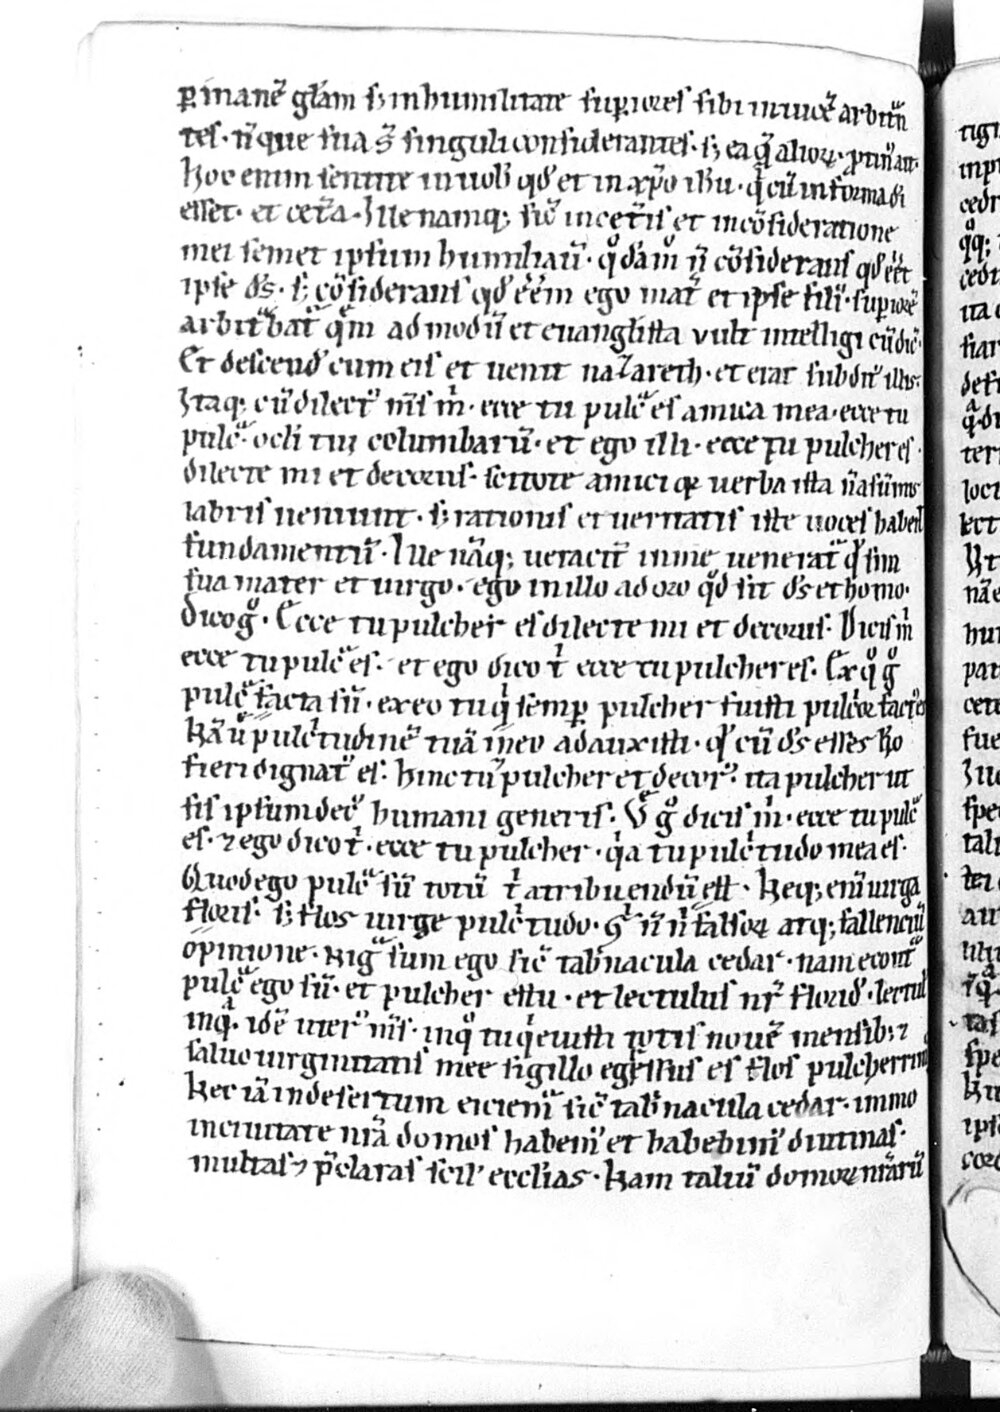 ꝑ inanē gl̄am sꝫ in humilitate suꝑiores sibi inuicē arbitn̄
tes· n̄ que sua s̄ singuli considerantes· sꝫ ea q̄ alioꝝ·
Hoc enim sentite in uob̄ qd̓ et in xp̄o ih̄u· qͥ cū in forma dī
esset· et cet̄a· Iue namqꝫ sic̄ in cet̄is et in cōsideratione
mei semet ipsum humiliauͥ· qͦdāmͦ n̄ cōsiderans qd̓ eēt
ipse d̄s· sꝫ cōsiderans qd̓ eēm ego mat̄ et ipse filiꝰ· suꝑiorē
arbit̄bat̄ qͤm admodū et euangl̄ista vult intelligi cū dic̄·
Et descend̓ cum eis et uenit nazareth· et erat subditꝰ illis·
Itaqꝫ cū dilectꝰ mꝰs mͥ· ecce tu pulc̄ es amica mea· ecce tu
pulc̄· oc̄li tui columbarū· et ego illi· ecce tu pulcher es·
dilecte mi et decorus· scitote amici qꝛ uerba ista n̄ a sūmis
labris ueniunt· sꝫ rationis et ueritatis iste uoces habent
fundamentū· Iue nāqꝫ ueracit̄ in me uenerat̄ qͤ sim
sua mater et uirgo· ego in illo adoro qd̓ sit d̄s et homo·
Dico gͦ· Ecce tu pulcher es dilecte mi et decorus· Dicis mͥ
ecce tu pulc̄ es· et ego dico tͥ ecce tu pulcher es· Ex qͦ gͦ
pulc̄ facta sū· ex eo tu qͥ semꝑ pulcher fuisti pulcͥor factꝰ es
Hā ū pulcͥtudinē tuā in eo adauxisti· qͤ cū d̄s esses ho
fieri dignatꝰ es· hinc tu pulcher et decorꝰ· ita pulcher ut
sis ipsum decꝰ humani generis· Ū gͦ dicis mͥ· ecce tu pulc̄
es· ⁊ ego dico tͥ· ecce tu pulcher· qͥa tu pulcͥtudo mea es·
Quod ego pulc̄ sū totū tͥ atribuendū est· Neqꝫ enī uirga
floris· sꝫ flos uirge pulcͥtudo· n̄ falsoꝝ atqꝫ fallenciū
opinione· nigͣ sum ego sic̄ tab̄nacula cedar· nam econtͣ
pulc̄ ego sū· et pulcher es tu· et lectulus nr̄ floridꝰ· lectulꝰ
inqͣ· idē uterꝰ mꝰs· in qͦ tu qͥeuisti totis nouē mensibꝫ ⁊
saluo uirginitatis mee sigillo egr̄ssus es flos pulcherrimꝰ
Nec iā in desertum eiciemꝰ sic̄ tab̄nacula cedar· immo
in ciuitate nr̄a domos habemꝰ et habebimꝰ diutinas·
multas ⁊ p̄claras scil̓ ecclīas· Nam taliū domoꝝ nr̄arū